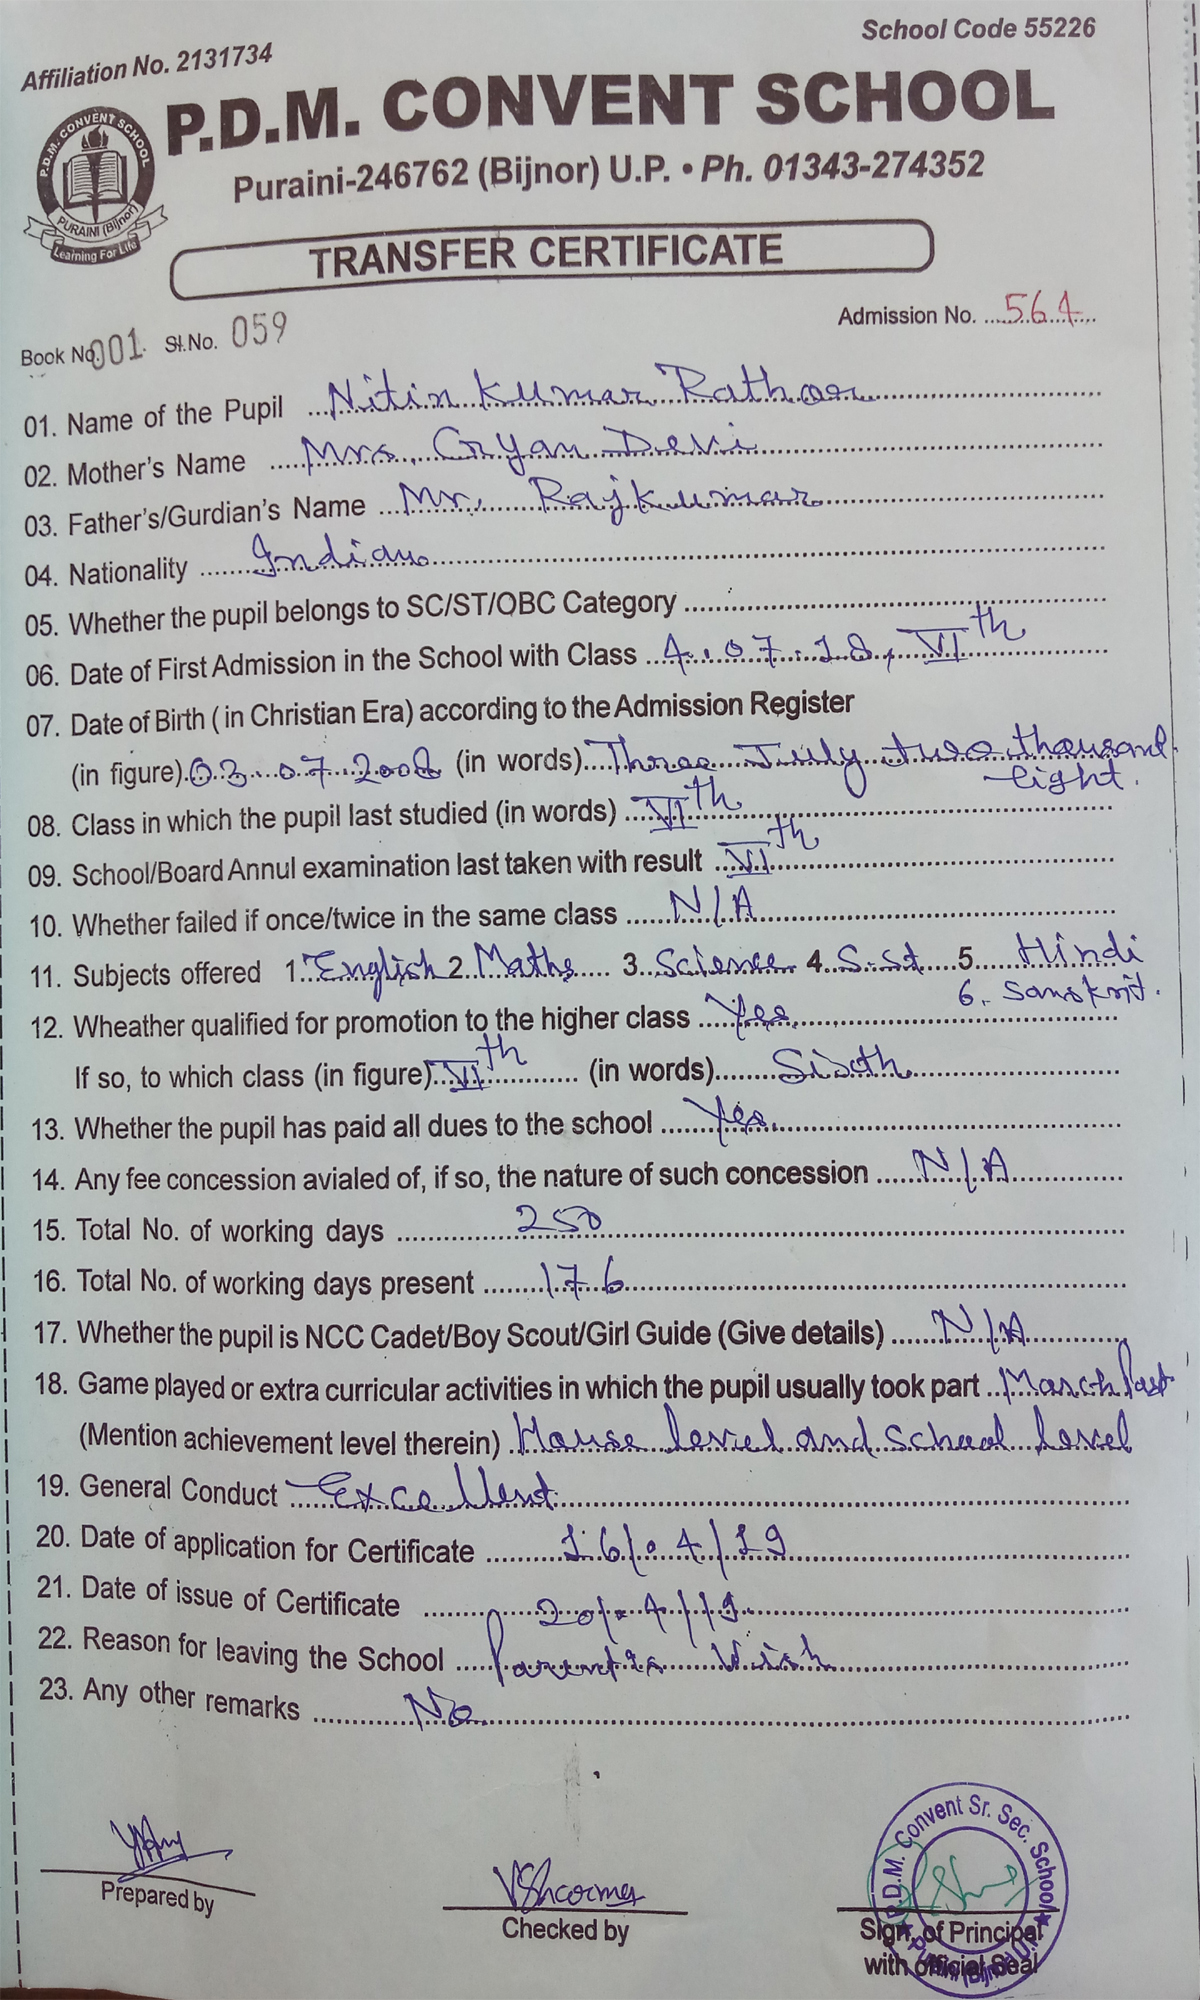 School Code 55226
Affiliation No. 2131734
P.D.M. CONVENT SCHOOL
Puraini-246762 (Bijnor) U.P. • Ph. 01343-274352
P.D.M. CONVENT SCHOOL
PURAINI (Bijnor)
Learning For Life
TRANSFER CERTIFICATE
Admission No. 564
Book No. 001 Sl.No. 059
01. Name of the Pupil Nitin Kumar Rathor
02. Mother's Name Mrs. Gyan Devi
03. Father's/Gurdian's Name Mr. Rajkumar
04. Nationality Indian
05. Whether the pupil belongs to SC/ST/OBC Category
06. Date of First Admission in the School with Class 4.07.18, VIth
07. Date of Birth ( in Christian Era) according to the Admission Register
(in figure) 03.07.2008 (in words) Three July two thousand
eight.
08. Class in which the pupil last studied (in words) VIth
09. School/Board Annul examination last taken with result VIth
10. Whether failed if once/twice in the same class N/A
11. Subjects offered 1. English 2. Maths 3. Science 4. S.St 5. Hindi
6. Sanskrit.
12. Wheather qualified for promotion to the higher class Yes
If so, to which class (in figure) VIth (in words) Sixth
13. Whether the pupil has paid all dues to the school Yes
14. Any fee concession avialed of, if so, the nature of such concession N/A
15. Total No. of working days 250
16. Total No. of working days present 176
17. Whether the pupil is NCC Cadet/Boy Scout/Girl Guide (Give details) N/A
18. Game played or extra curricular activities in which the pupil usually took part March Past
(Mention achievement level therein) House level and School level
19. General Conduct Excellent
20. Date of application for Certificate 16/04/19
21. Date of issue of Certificate 20/04/19
22. Reason for leaving the School Parent's Wish
23. Any other remarks No
VSharma
Prepared by
Checked by
Sign. of Principal
with official Seal
P.D.M. Convent Sr. Sec. School
Puraini (Bijnor) U.P.